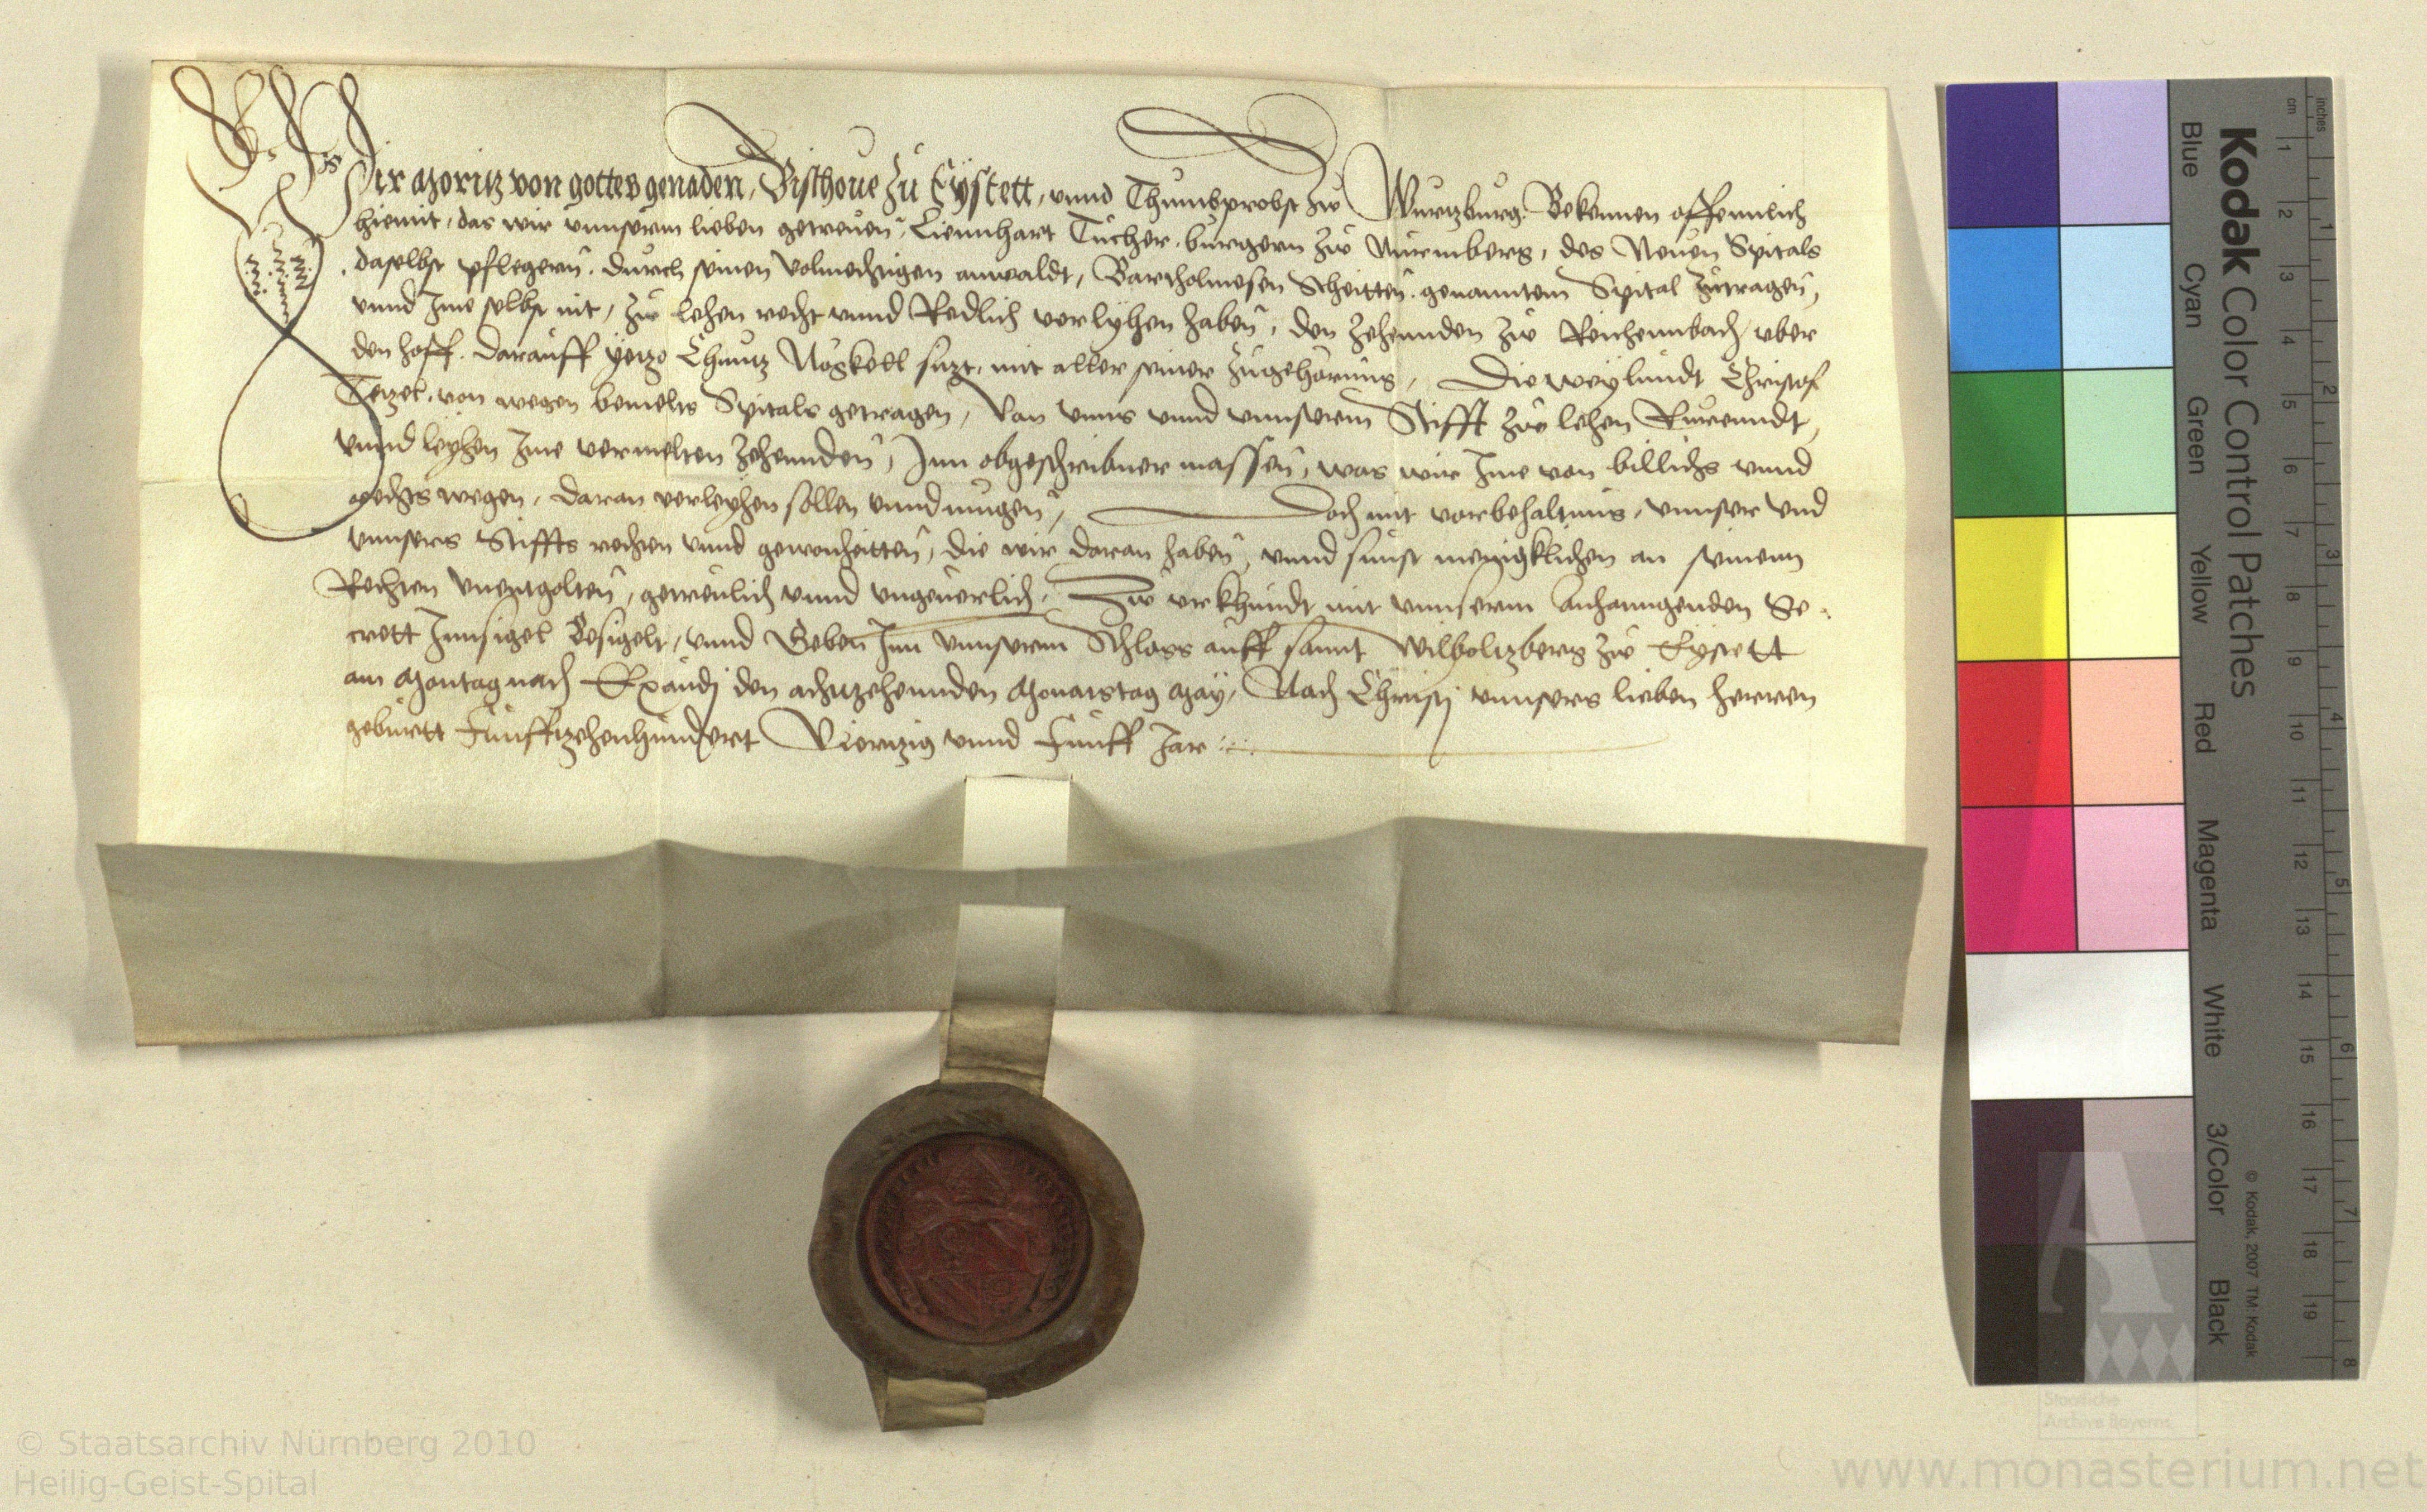 Wir Moritz von gottes genaden, Bischoue zu Eÿstett, vnnd Thumbprobst zu Wurtzburg. Bekennen offennlich
hiemit, das wir vnnserm lieben getreuen, Liennhart Tucher, burgern zu Nurmberg, des Neuen Spitals
daselbst pflegern, durch seinen volmechtigen anwaldt, Bartholmesen Scheitten, genanntem Spital zutragen,
vnnd Ime selbst nit, zu lehen recht vnnd Redlich verlyhen haben, den zehennden zu Reichennbach, vber
den hoff, darauff yetzo Chuntz Noskell sitzt, mit aller seiner zugehorung, Die weylundt Christof
Tetzel, von wegen bemelts Spitals getragen, Von vnns vnnd vnnserem Stifft zu lehen Ruerenndt,
vnnd leyhen Ime vermelten zehennden, Inn obgeschribner massen, was wir Ime von billichs vnnd
rechts wegen, daran verleyhen sollen vnnd mugen, Doch mit vorbehaltnus, vnnser vnd
vnnsers Stiffts rechten vnnd gewonheitten, die wir daran haben, vnnd sunst menigklichen an seinenn
Rechten vnentgolten, getreulich vnnd vngeuerlich, Zu vrkhundt mit vnnserm anhanngenden Se¬
crett Innsigel Besigelt, vnnd Geben Inn vnnserem Schloss auff sannt Wilboltzberg zu Eystett
am Montag nach Exaudj den achtzehennden Monatstag May, Nach Christj vnnsers lieben herren
geburtt Funffzehenhundert Viertzig vnnd Funff Jar
Kodak Color Control Patches
Blue Cyan Green Yellow Red Magenta White 3/Color Black
© Kodak, 2007 TM: Kodak
inches 1 2 3 4 5 6 7 8
cm 1 2 3 4 5 6 7 8 9 10 11 12 13 14 15 16 17 18 19
Staatliche
Archive Bayerns
© Staatsarchiv Nürnberg 2010
Heilig-Geist-Spital
www.monasterium.net